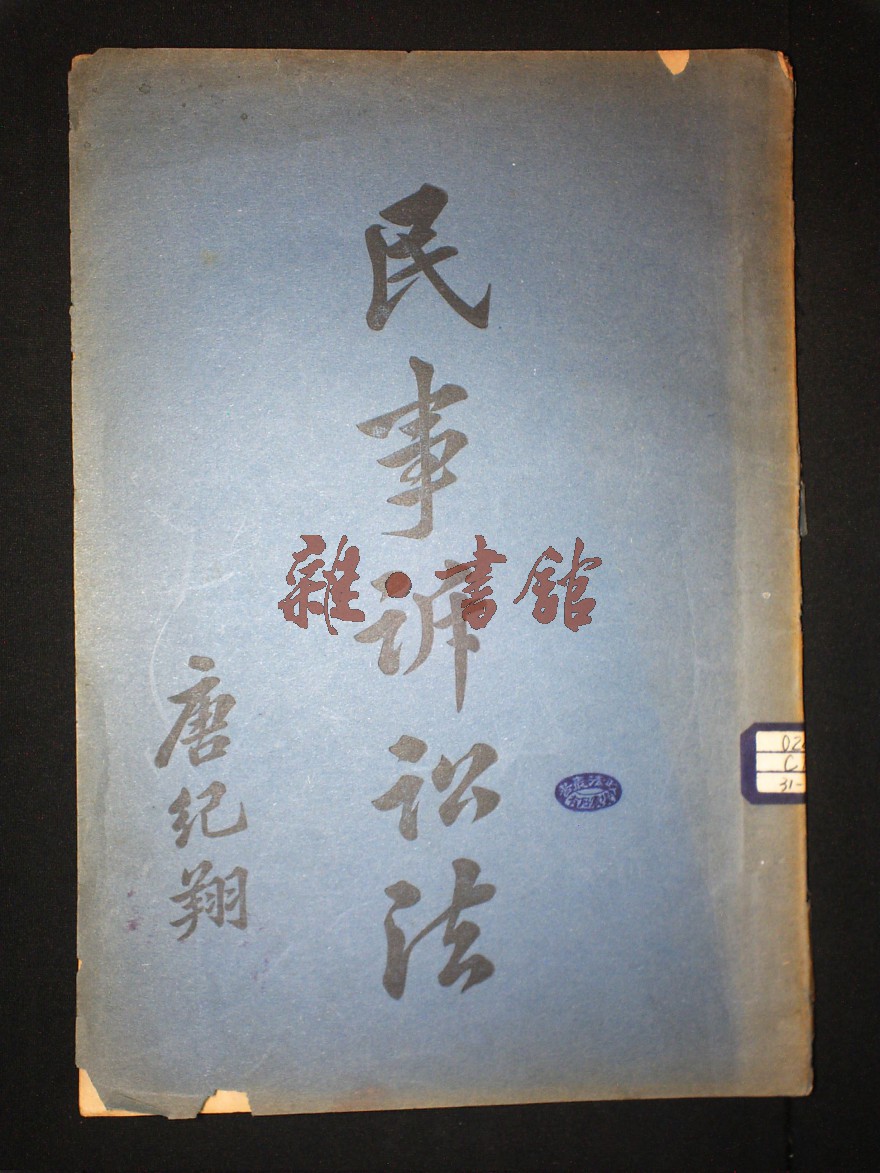 民事訴訟法
唐纪翔
雜·書館
02
C
31-